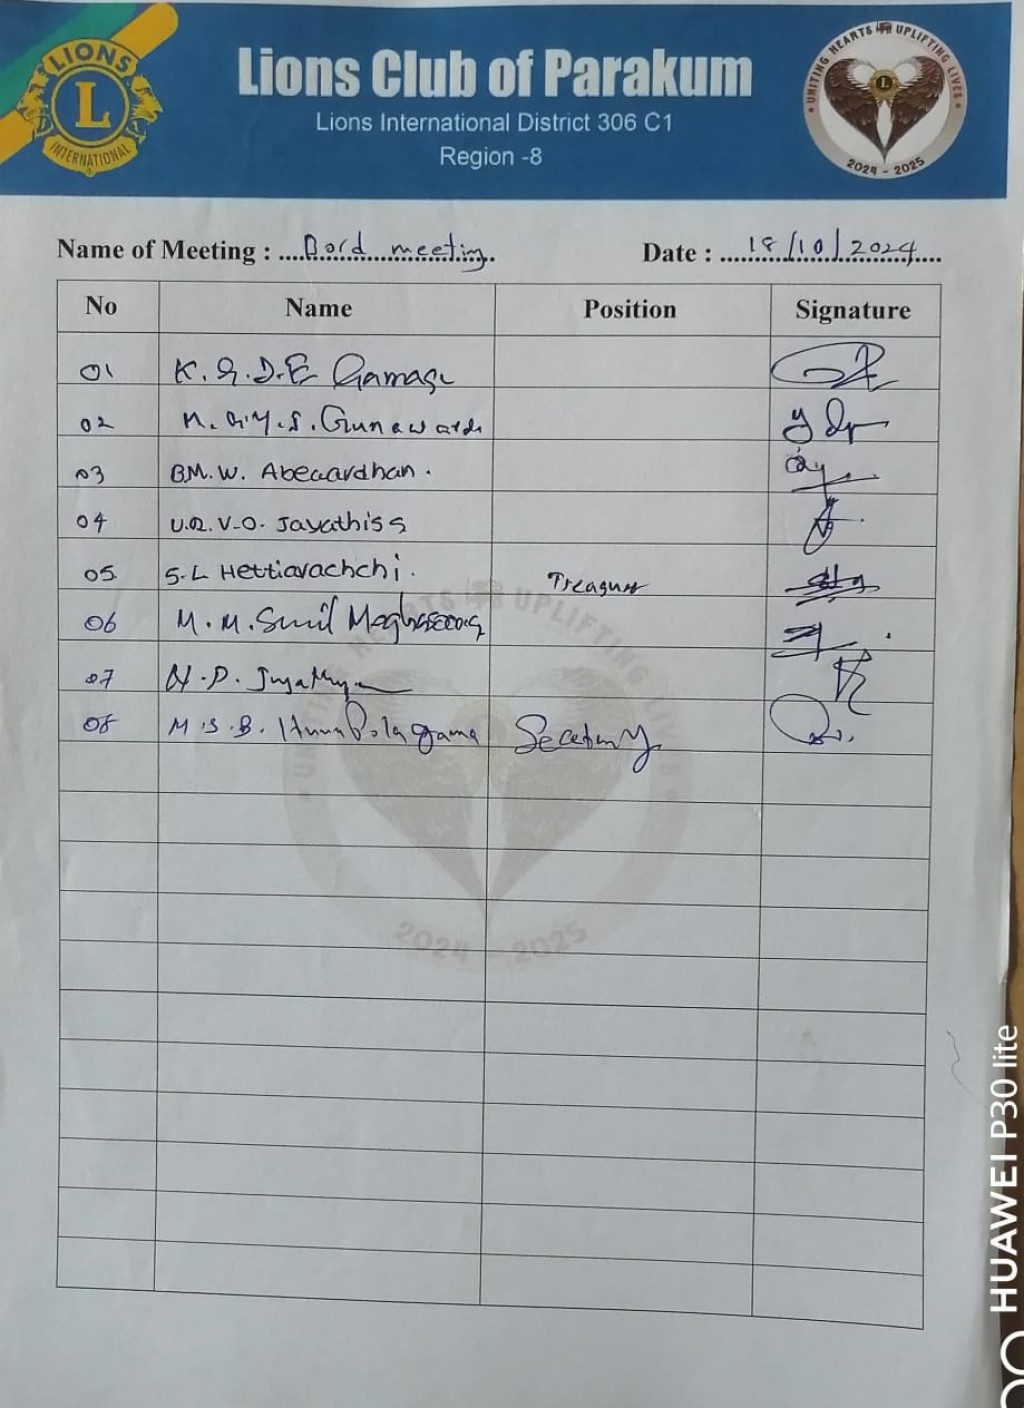 LIONS
L
INTERNATIONAL
Lions Club of Parakum
Lions International District 306 C1
Region -8
UNITING HEARTS UPLIFTING LIVES
2024 - 2025
Name of Meeting : Bord meeting Date : 18/10/2024
No Name Position Signature
01 K.G.D.E Gamage
02 Gunawarde
03 B.M.W. Abeaardhan.
04 Jayathiss
05. S.L Hettiarachchi. Treasurer
06 M.M. Sunil
07
08 M.S.B.
UNITING HEARTS UPLIFTING LIVES
2024 - 2025
HUAWEI P30 lite